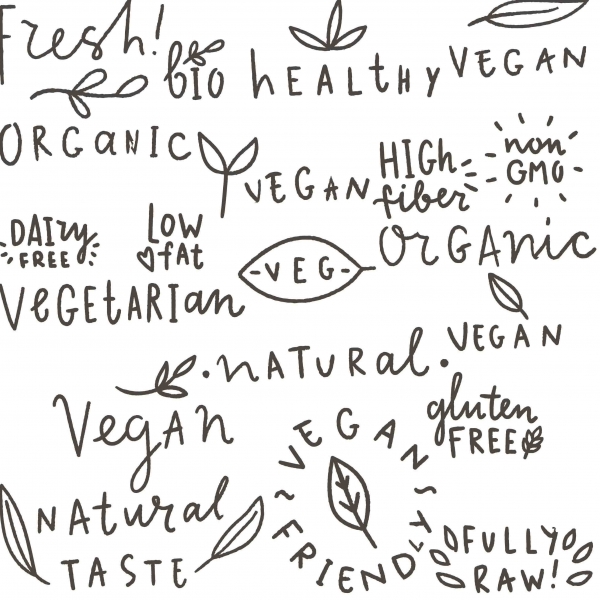 Fresh!
bio
hEALtHY
VEGAN
ORGaNIC
VEGAN
HIGh
fiber
non
GMO
DAIry
FREE
Low
fAt
-VEG-
OrGAnic
VeGEtARIan
VEGAN
·nATURal·
VegAn
gluten
FREE
VEGANS
~FRIENDLY
NAtural
TASTE
FULLY
RAW!